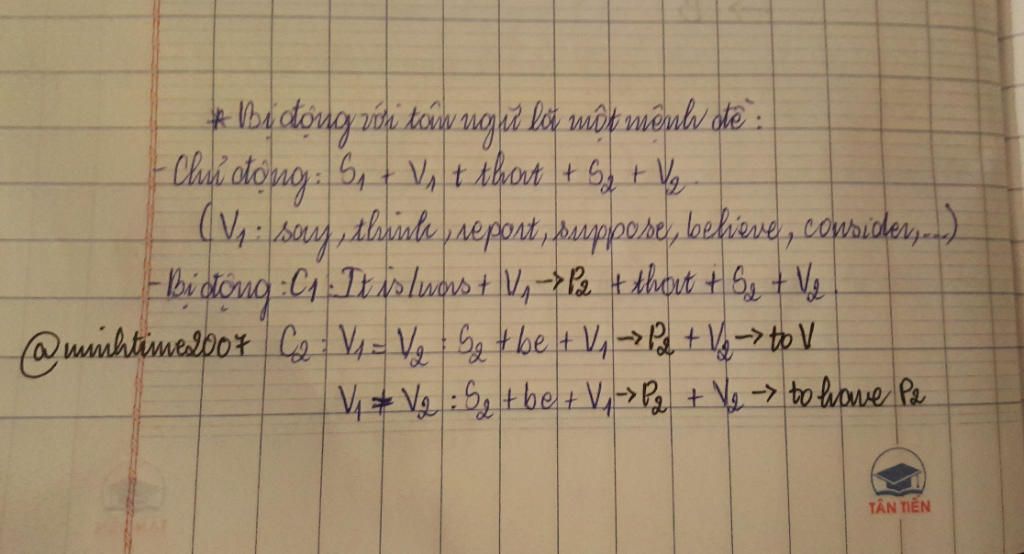 * Bị động với tân ngữ là một mệnh đề:
- Chủ động: S₁ + V₁ + that + S₂ + V₂.
(V₁: say, think, report, suppose, believe, consider,...)
- Bị động: C1: It is/was + V₁ → P₂ + that + S₂ + V₂.
@minhtime2007 C₂: V₁ = V₂ : S₂ + be + V₁ → P₂ + V₂ → to V
V₁ ≠ V₂ : S₂ + be + V₁ → P₂ + V₂ → to have P₂
TÂN TIẾN